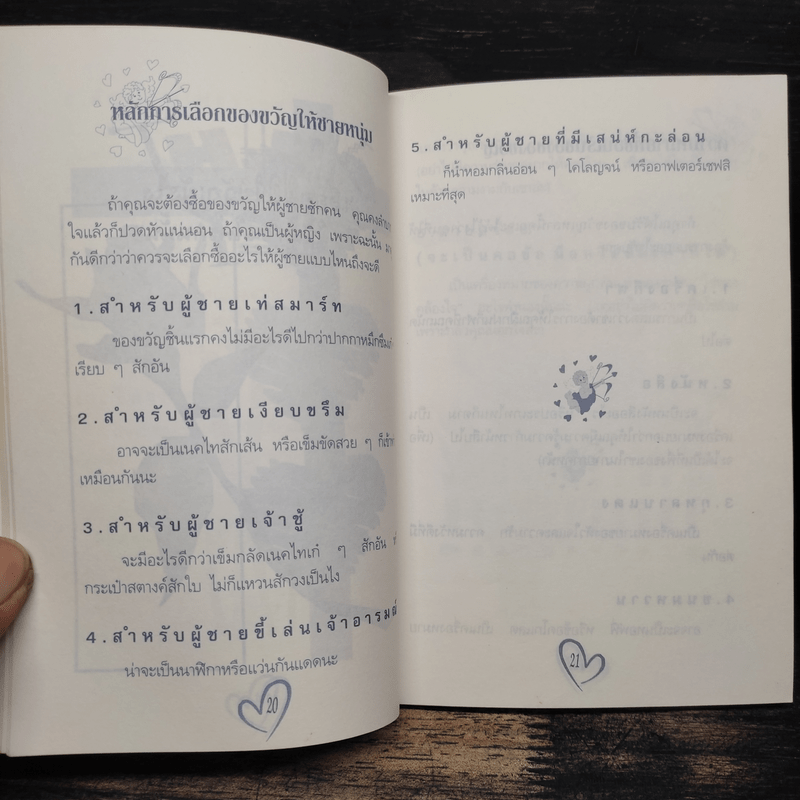 หลักการเลือกของขวัญให้ชายหนุ่ม
ถ้าคุณจะต้องซื้อของขวัญให้ผู้ชายซักคน คุณคงลำบาก
ใจแล้วก็ปวดหัวแน่นอน ถ้าคุณเป็นผู้หญิง เพราะฉะนั้น
กันดีกว่าว่าควรจะเลือกซื้ออะไรให้ผู้ชายแบบไหนถึงจะดี
1.สำหรับผู้ชายเท่สมาร์ท
ของขวัญชิ้นแรกคงไม่มีอะไรดีไปกว่าปากกาหมึกซึม
เรียบ ๆ สักอัน
2.สำหรับผู้ชายเงียบขรึม
อาจจะเป็นเนคไทสักเส้น หรือเข็มขัดสวย ๆ ก็เข้าท่า
เหมือนกันนะ
3.สำหรับผู้ชายเจ้าชู้
จะมีอะไรดีกว่าเข็มกลัดเนคไทเก๋ ๆ สักอัน
กระเป๋าสตางค์สักใบ ไม่ก็แหวนสักวงเป็นไง
4.สำหรับผู้ชายขี้เล่นเจ้าอารมณ์
น่าจะเป็นนาฬิกาหรือแว่นกันแดดนะ
20
5.สำหรับผู้ชายที่มีเสน่ห์กะล่อน
ก็น้ำหอมกลิ่นอ่อน ๆ โคโลญจน์ หรืออาฟเตอร์เชฟสิ
เหมาะที่สุด
21